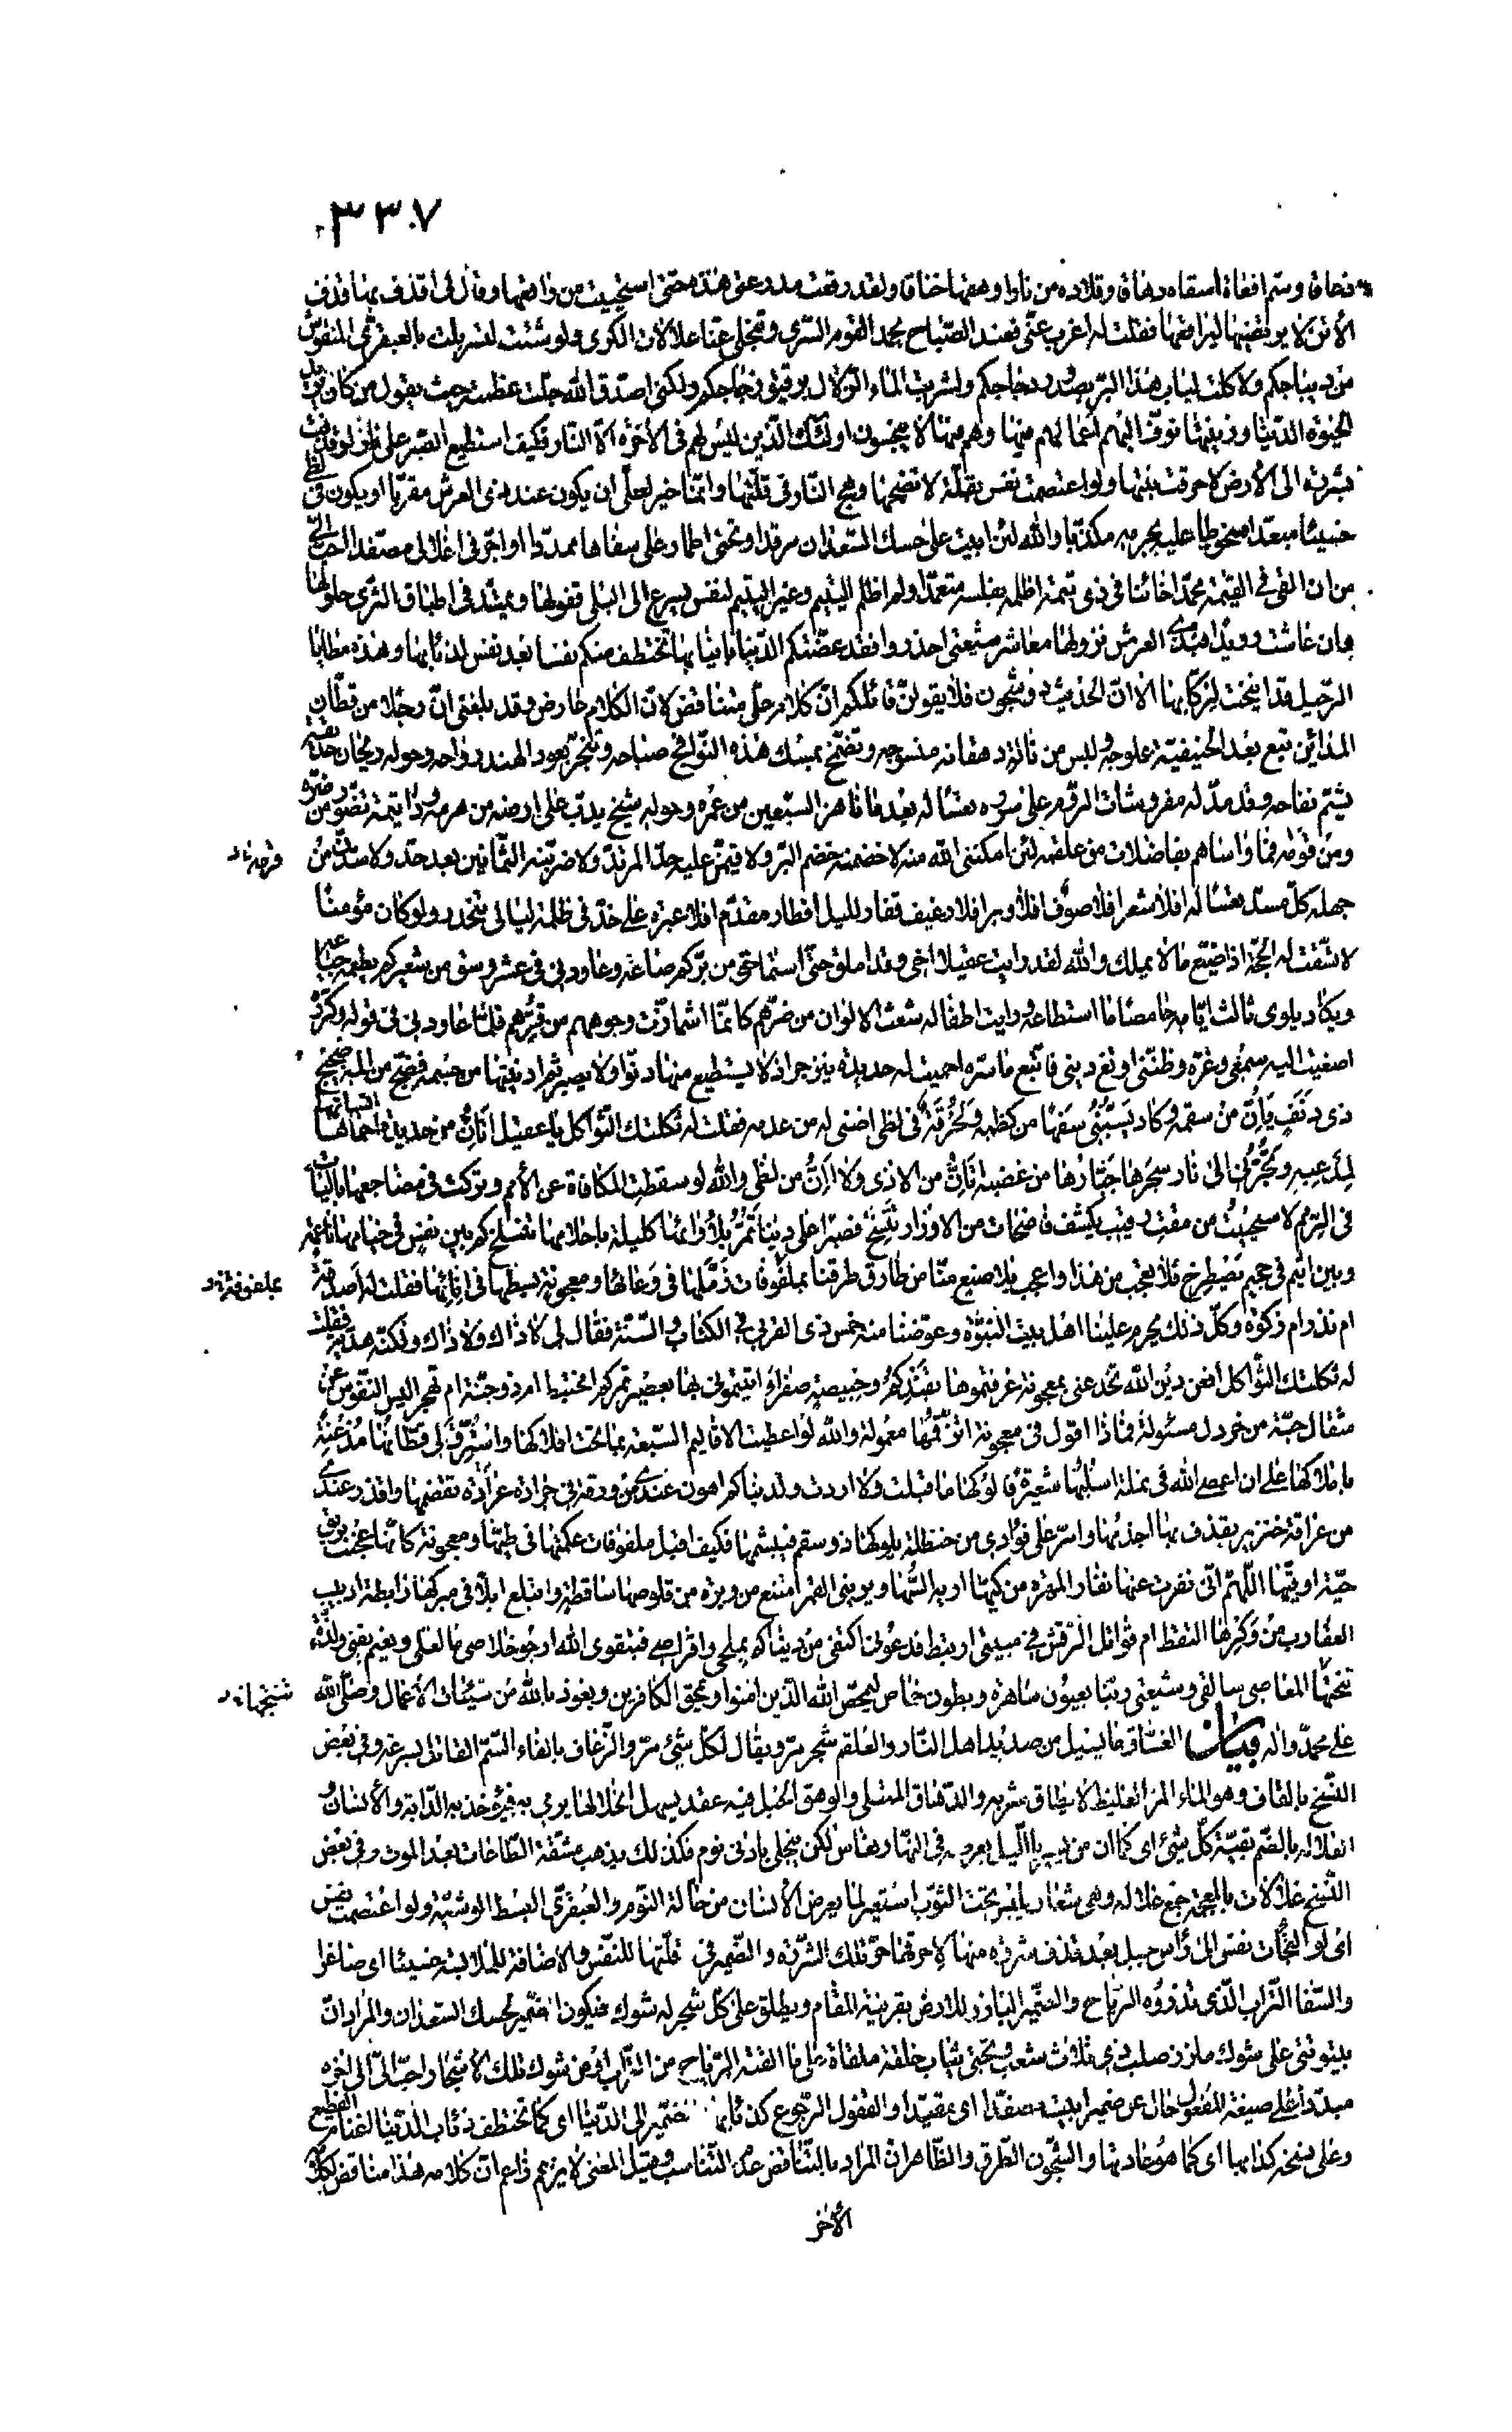 ٣٣٠٧
وسم افعاة اسقاه دهاق وقلادة من نار اوهقها خناقا ولقد رقعت مدرعتي هذه حتى استحييت من راقعها وقال لي اقذف بها قذف
الأتن لا يرتضيها ليراقعها فقلت له اغرب عنّي فعند الصّباح يحمد القوم السّرى وتنجلي عنّا علالات الكرى ولو شئت لتسربلت بالعبقريّ المنقوش
من ديباجكم ولأكلت لباب هذا البرّ بصدور دجاجكم ولشربت الماء الزّلال برقيق زجاجكم ولكنّي اصدّق الله جلّت عظمته حيث يقول من كان يريد
الحيوة الدّنيا وزينتها نوفّ اليهم اعمالهم فيها وهم فيها لا يبخسون اولئك الّذين ليس لهم في الأخرة الّا النّار فكيف استطيع الصّبر على نار لو قذفت
بشررة الى الأرض لاحرقت نبتها ولو اعتصمت نفس بقلّة لانضجها وهج النّار في قلّتها وايّما خير لعليّ ان يكون عند ذي العرش مقرّبا او يكون في لظى
خسيئا مبعّدا مسخوطا عليه بجرمه مكذّبا والله لئن ابيت على حسك السّعدان مرقدا وتحتي اطمار على سفاها ممدّدا او اجرّ في اغلالي مصفّدا احبّ اليّ
من ان القى في القيمة محمّدا خائنا في ذي يتمة اظلمه بفلسه متعمّدا ولم اظلم اليتيم وغير اليتيم لنفس يسرع الى البلى قفولها ويمتدّ في اطباق الثّرى حلولها
وان عاشت رويدا فبذي العرش نزولها معاشر شيعتي احذروا فقد عضّتكم الدّنيا بانيابها تختطف منكم نفسا بعد نفس كذئابها وهذه مطايا
الرّحيل قد انيخت لركّابها الا انّ الحديث ذو شجون فلا يقولنّ قائلكم انّ كلام عليّ متناقض لانّ الكلام عارض وقد بلغني انّ رجلا من قطّان
المدائن تبع بعد الحنيفيّة علوجه ولبس من نالة دهقانه منسوجه وتضمّخ بمسك هذه النّوافج صباحه وتبخّر بعود الهند رواحه وحوله ريحان حديقة
يشمّ تفاحه وقد مدّ له مفروشات الرّوم على سرره تعسا له بعد ما ناهز السّبعين من عمره وحوله شيخ يدبّ على ارضه من هرمه وذا يتمة تضوّر من ضرّه
ومن قرمه فما واساهم بفاضلات من علقمه لئن امكنني الله منه لاخضمنّه خضم البرّ ولاقيمنّ عليه حدّ المرتدّ ولاضربنّه الثّمانين بعد حدّ ولاسدّنّ من
جهله كلّ مسدّ تعسا له افلا شعر افلا صوف افلا وبر افلا رغيف قفار للّيل افطار مقدّم افلا عبرة على خدّ في ظلمة ليالي تنحدر ولو كان مؤمنا
لاتّسقت له الحجّة اذا ضيّع ما لا يملك والله لقد رايت عقيلا اخي وقد املق حتّى استماحني من برّكم صاعة وعاودني في عشر وسق من شعيركم يطعمه جياعه
ويكاد يلوي ثالث ايّامه خامصا ما استطاعه ورايت اطفاله شعث الالوان من ضرّهم كانّما اشمازّت وجوههم من قرّهم فلمّا عاودني في قوله وكرّره
اصغيت اليه سمعي وغرّه وظنّني اوتغ ديني فاتّبع ما سرّه احميت له حديدة ينزجر اذ لا يستطيع منها دنوّا ولا يصبر ثمّ ادنيتها من جسمه فضجّ من المه ضجيج
ذي دنف يانّ من سقمه وكاد يسبّني سفها من كظمه ولحرقة في لظى اضنى له من عدمه فقلت له ثكلتك الثّواكل يا عقيل اتانّ من حديدة احماها انسانها
لمدعبه وتجرّني الى نار سجرها جبّارها من غضبه اتانّ من الاذى ولا ائنّ من لظى والله لو سقطت المكافاة عن الأمم وتركت في مضاجعها باليات
في الرّمم لاستحييت من مقت رقيب يكشف فاضحات من الاوزار تنسخ فصبرا على دنيا تمرّ بلاوائها كليلة باحلامها تنسلخ كم بين نفس في خيامها ناعمة
وبين اثيم في جحيم يصطرخ فلا تعجب من هذا واعجب بلا صنع منّا من طارق طرقنا بملفوفات زمّلها في وعائها ومعجونة بسطها في انائها فقلت له اصدقة
ام نذر ام زكوة وكلّ ذلك يحرم علينا اهل بيت النبوّة وعوّضنا منه خمس ذي القربى في الكتاب والسّنّة فقال لي لا ذاك ولا ذاك ولكنّه هديّة فقلت
له ثكلتك الثّواكل افعن دين الله تخدعني بمعجونة غرقتموها بقندكم وخبيصة صفراء اتيتموني بها بعصير تمركم امختبط ام ذو جنّة ام تهجر اليس النّفوس عن
مثقال حبّة من خردل مسئولة فماذا اقول في معجونة اتزقّمها معمولة والله لو اعطيت الاقاليم السّبعة بما تحت افلاكها واسترقّ لي قطّانها مذعنة
باملاكها على ان اعصي الله في نملة اسلبها شعيرة فالوكها ما قبلت ولا اردت ولدنياكم اهون عندي من ورقة في في جرادة تقضمها واقذر عندي
من عراقة خنزير يقذف بها اجذمها وامرّ على فؤادي من حنظلة يلوكها ذو سقم فيبشمها فكيف اقبل ملفوفات عكمتها في طيّها ومعجونة كانّها عجنت بريق
حيّة او قيئها اللّهمّ انّي نفرت عنها نفار المهرة من كيّها اريه السّها ويريني القمر امتنع من وبرة من قلوصها ساقطة وابتلع ابلا في مبركها رابطة ادبيب
العقارب من وكرها التقط ام قواتل الرّقش في مبيتي ارتبط فدعوني اكتفي من دنياكم بملحي واقراصي فبتقوى الله ارجو خلاصي ما لعليّ ونعيم يفنى ولذّة
تنحتها المعاصي سالقى وشيعتي ربّنا بعيون ساهرة وبطون خماص ليمحّص الله الّذين امنوا ويمحق الكافرين ونعوذ بالله من سيّئات الأعمال وصلّى الله
على محمّد واله بيان الغسّاق ما يسيل من صديد اهل النّار والعلقم شجر مرّ ويقال لكلّ شيء مرّ والزّعاف بالفاء السّمّ القاتل بسرعة وفي بعض
النّسخ بالقاف وهو الماء المرّ الغليظ لا يطاق شربه والدّهاق الممتلي والوهق الحبل فيه عقد يسهل انحلالها يرمى به فيؤخذ به الدّابة والأنسان
العلالة بالضّم بقيّة كلّ شيء اي كما ان من بالّليل يعرضه في النّهار نعاس لكن ينجلي بادنى نوم فكذلك يذهب مشقّة الطّاعات بعد الموت وفي بعض
النّسخ غلالات بالمعجمة جمع غلالة وهي شعار يلبس تحت الثّوب استعير لما يعرض الأنسان من حالة النّوم والعبقريّ البسط الموشيّة ولو اعتصمت نفس
اي لو التجات نفس الى رأس جبل بعد قذف شررة منها لاحرقها حرّ تلك الشّررة والضّمير في قلّتها للنّفس والاضافة للملابسة خسيئا اي صاغرا
والسّفا التّراب الّذي تذروه الرّياح والضّمير البارز للارض بقرينة المقام ويطلق على كلّ شجر له شوك فيكون الضّمير لحسك السّعدان والمراد انّ
بيتوتتي على شوك صلب ذي ثلاث شعب وتحتي ثياب خلقة ملقاة على ما القته الرّياح من التّراب او من شوك تلك الاشجار احبّ اليّ الى اخره
ممدّدا على صيغة المفعول حال عن ضمير ابيت مصفّدا اي مقيّدا والقفول الرّجوع كذئابها الضّمير الى الدّنيا اي كما تختطف ذئاب الدّنيا الغنائم من القطيع
وعلى نسخة كدابها اي كما هو عادتها والشّجون الطّرق والظّاهر انّ المراد بالتّناقض عدم التّناسب وقيل المعنى لا يزعم زاعم انّ كلامه هذا مناقض لكلامه
الأخر